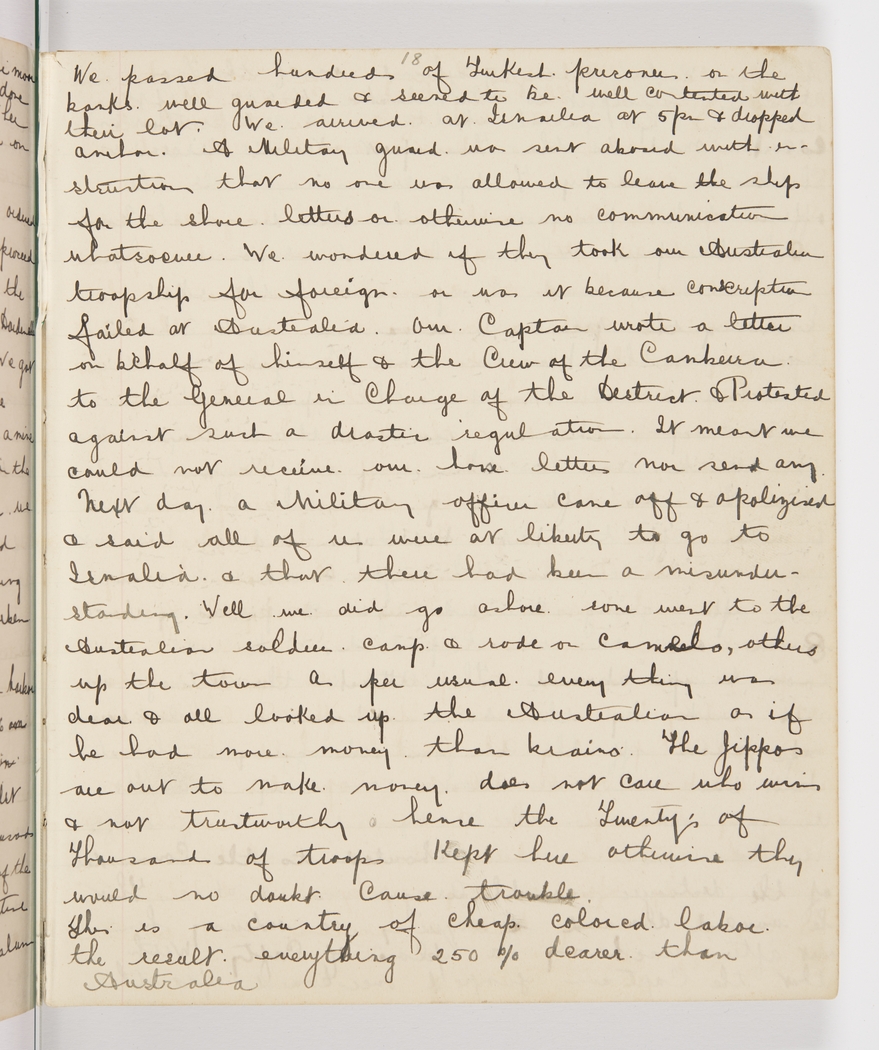 18
We passed hundreds of Turkesh prisoners on the
banks well guarded & seemed to be well contented with
their lot. We arrived at Ismailia at 5pm & dropped
anchor. A Military guard was sent aboard with in-
structions that no one was allowed to leave the ship
for the shore letters or otherwise no communication
whatsoever. We wondered if they took our Australian
troopship for foreign or was it because conscription
failed at Australia. Our Captain wrote a letter
on behalf of himself & the Crew of the Canberra
to the General in Charge of the District. & Protested
against such a drastic regulation. It meant we
could not receive our home letters nor send any.
Next day a Military officer came off & apolizised
& said all of us were at liberty to go to
Ismalia. & that there had been a misunder-
standing. Well we did go ashore some went to the
Australian soldiers camp & rode on Camels, others
up the town As per usual every thing was
dear & all looked up the Australian as if
he had more money than brains. The Jippos
are out to make money does not care who wins
& not trustworthy hense the Twenty's of
Thousands of troops Kept here otherwise they
would no doubt Cause trouble.
This is a country of cheap colored labor.
the result everything 250 % dearer than
Australia